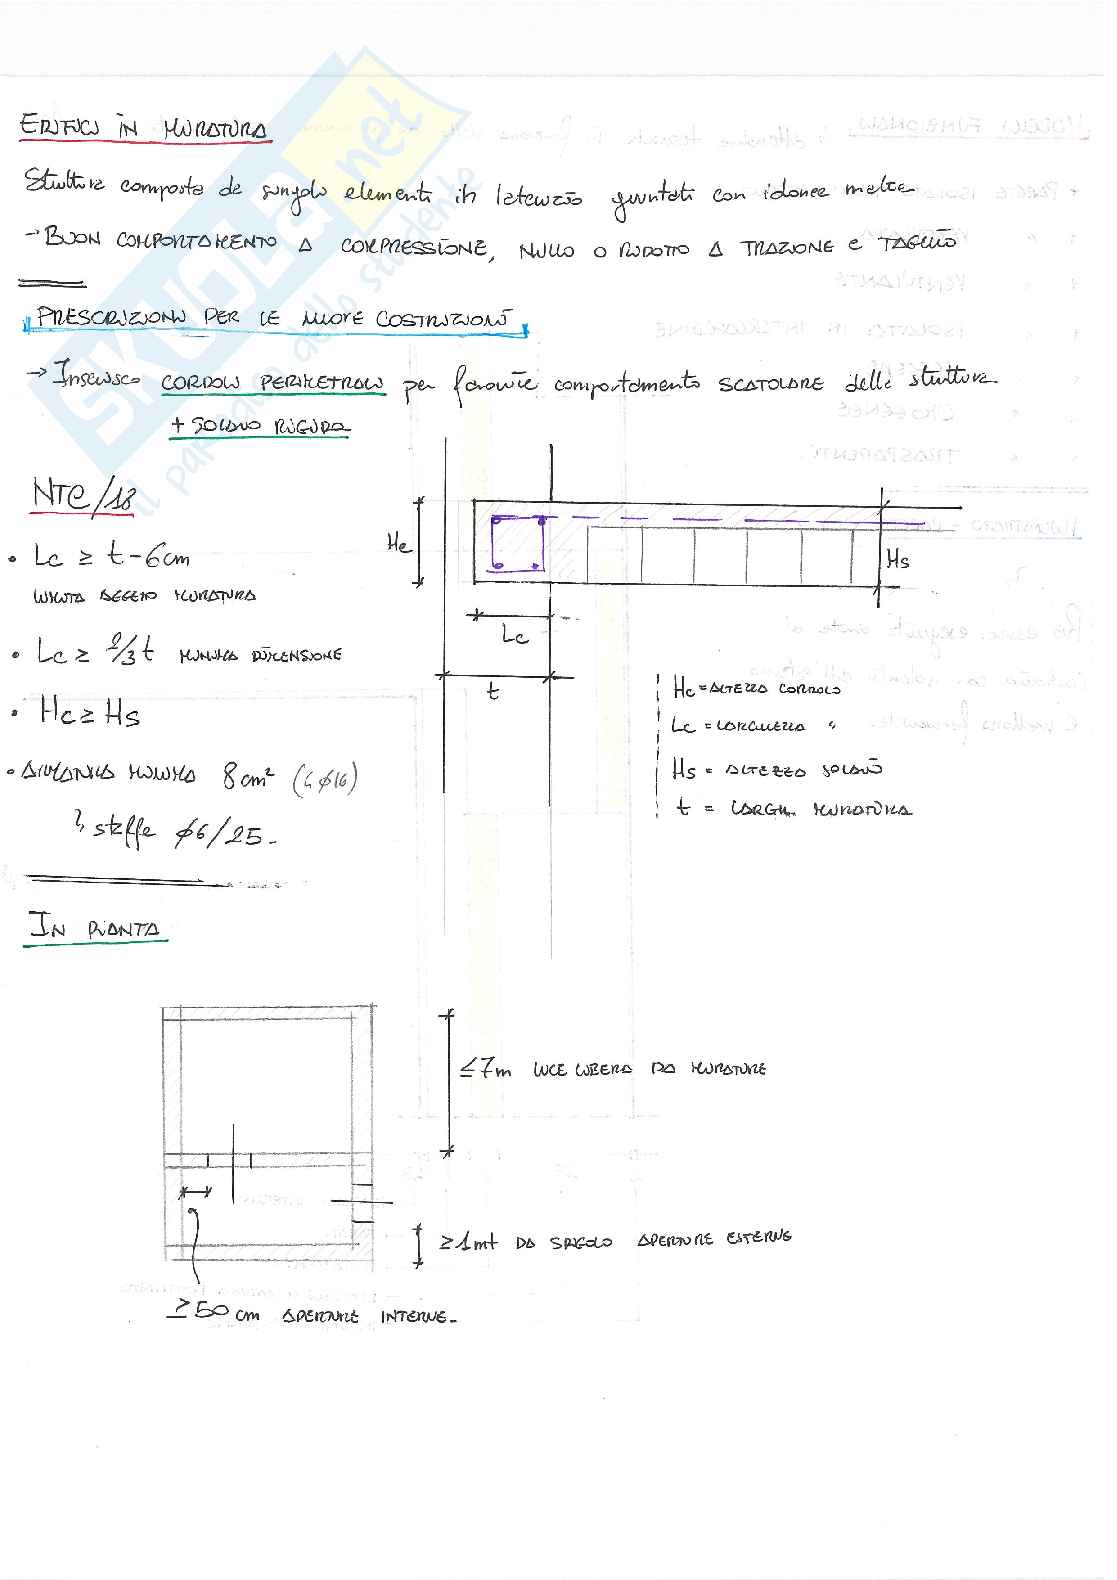 EDIFICI IN MURATURA
Struttura composta da singoli elementi in laterizio giuntati con idonee malte
→ BUON COMPORTAMENTO A COMPRESSIONE, NULLO O RIDOTTO A TRAZIONE E TAGLIO
PRESCRIZIONI PER LE NUOVE COSTRUZIONI
→ Inserisco CORDOLI PERIMETRALI per favorire comportamento SCATOLARE della struttura
+ SOLAIO RIGIDO
NTC/18
• Lc ≥ t - 6cm
LIMITA DEGENO MURATURA
• Lc ≥ 2/3 t MINIMA DIMENSIONE
• Hc ≥ Hs
• ARMATURA MINIMA 8 cm² (4 ϕ16)
staffe ϕ6/25.
Hc
Hs
Lc
t
Hc = ALTEZZA CORDOLO
Lc = LARGHEZZA "
Hs = ALTEZZA SOLAIO
t = LARGH. MURATURA
IN PIANTA
≤ 7m LUCE LIBERA DA MURATURE
≥ 1mt DA SPIGOLO APERTURE ESTERNE
≥ 50 cm APERTURE INTERNE.
SKUOLA.net
il paradiso dello studente